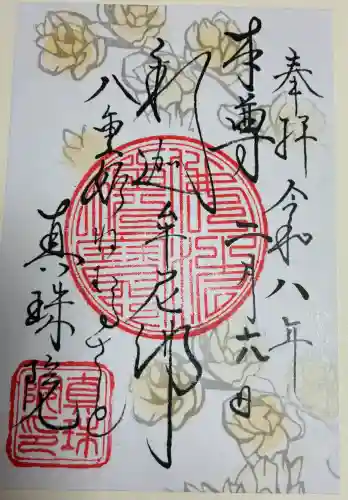 奉拝 令和八年
本尊 二月六日
釈迦牟尼佛
八重姫
真珠院
真珠院印